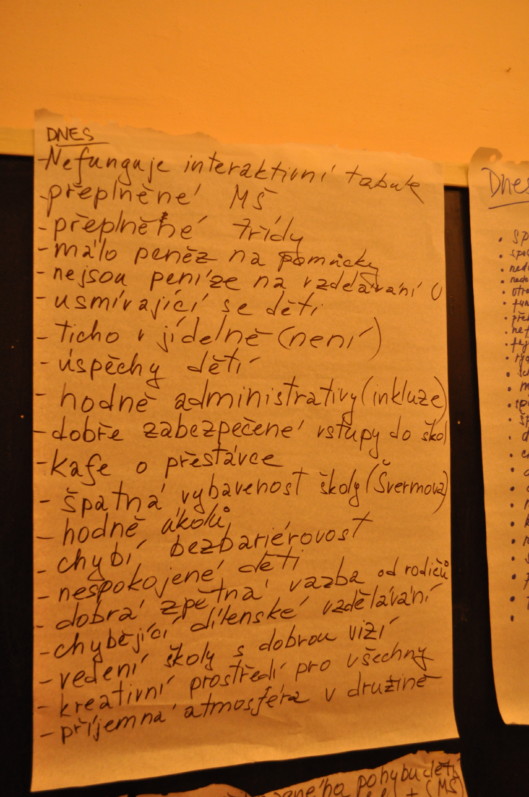 DNES
- Nefunguje interaktivní tabule
- přeplněné MŠ
- přeplněné třídy
- málo peněz na pomůcky
- nejsou peníze na vzdělávání U
- usmívající se děti
- ticho v jídelně (není)
- úspěchy dětí
- hodně administrativy (inkluze)
- dobře zabezpečené vstupy do škol
- kafe o přestávce
- špatná vybavenost školy (Švermova)
- hodně úkolů
- chybí bezbariérovost
- nespokojené děti
- dobrá zpětná vazba od rodičů
- chybějící dílenské vzdělávání
- vedení školy s dobrou vizí
- kreativní prostředí pro všechny
- příjemná atmosféra v družině
Dnes
pohybu dětí